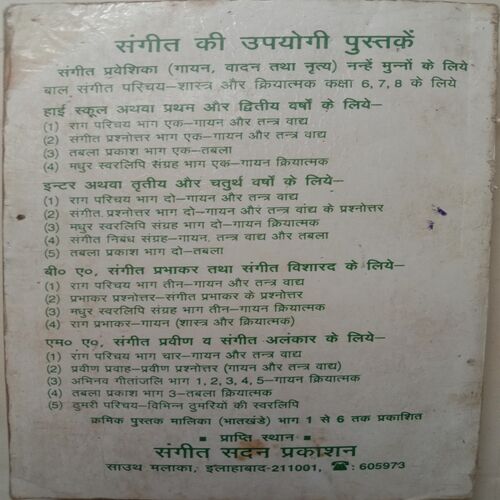 संगीत की उपयोगी पुस्तकें
संगीत प्रवेशिका (गायन, वादन तथा नृत्य) नन्हें मुन्नों के लिये
बाल संगीत परिचय–शास्त्र और क्रियात्मक कक्षा 6, 7, 8 के लिये
हाई स्कूल अथवा प्रथम और द्वितीय वर्षो के लिये–
(1) राग परिचय भाग एक–गायन और तन्त्र वाद्य
(2) संगीत प्रश्नोत्तर भाग एक–गायन और तन्त्र वाद्य
(3) तबला प्रकाश भाग एक–तबला
(4) मधुर स्वरलिपि संग्रह भाग एक–गायन क्रियात्मक
इन्टर अथवा तृतीय और चतुर्थ वर्षो के लिये–
(1) राग परिचय भाग दो–गायन और तन्त्र वाद्य
(2) संगीत प्रश्नोत्तर भाग दो–गायन और तन्त्र वाद्य के प्रश्नोत्तर
(3) मधुर स्वरलिपि संग्रह भाग दो–गायन क्रियात्मक
(4) संगीत निबंध संग्रह–गायन, तन्त्र वाद्य और तबला
(5) तबला प्रकाश भाग दो–तबला
बी० ए०, संगीत प्रभाकर तथा संगीत विशारद के लिये–
(1) राग परिचय भाग तीन–गायन और तन्त्र वाद्य
(2) प्रभाकर प्रश्नोत्तर–संगीत प्रभाकर के प्रश्नोत्तर
(3) मधुर स्वरलिपि संग्रह भाग तीन–गायन क्रियात्मक
(4) राग प्रभाकर–गायन (शास्त्र और क्रियात्मक)
एम० ए०, संगीत प्रवीण व संगीत अलंकार के लिये–
(1) राग परिचय भाग चार–गायन और तन्त्र वाद्य
(2) प्रवीण प्रवाह–प्रवीण प्रश्नोत्तर (गायन और तन्त्र वाद्य)
(3) अभिनव गीतांजलि भाग 1, 2, 3, 4, 5–गायन क्रियात्मक
(4) तबला प्रकाश भाग 3–तबला क्रियात्मक
(5) ठुमरी परिचय–विभिन्न ठुमरियों की स्वरलिपि
क्रमिक पुस्तक मालिका (भातखंडे) भाग 1 से 6 तक प्रकाशित
■ प्राप्ति स्थान ■
संगीत सदन प्रकाशन
साउथ मलाका, इलाहाबाद-211001, ☎: 605973